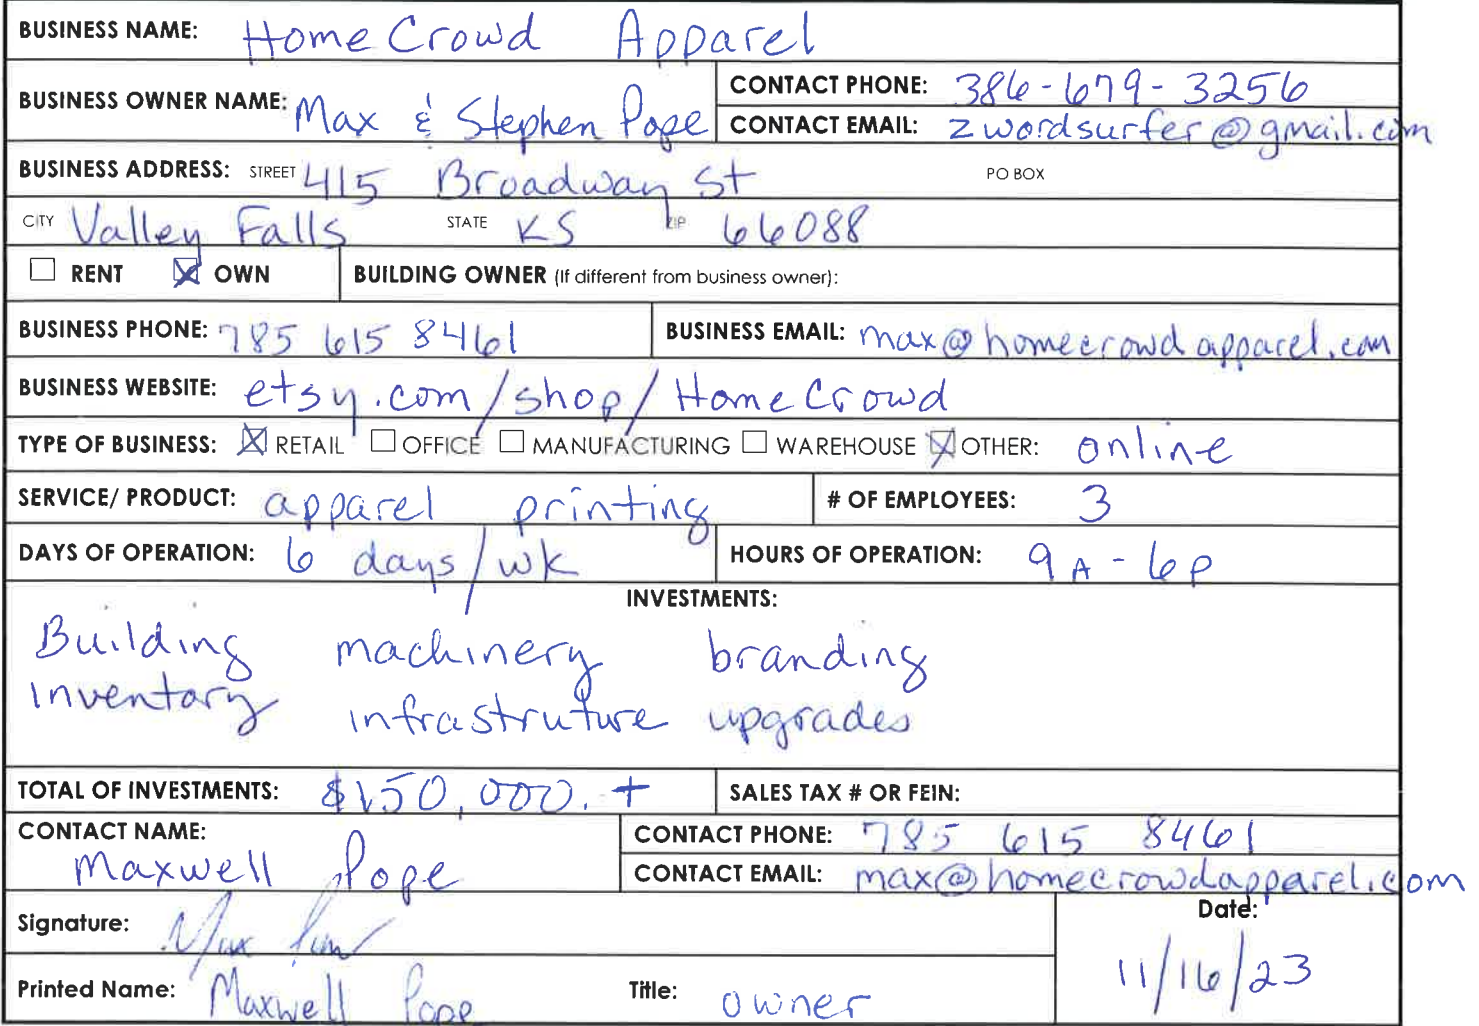 BUSINESS NAME: Home Crowd Apparel
BUSINESS OWNER NAME: Max & Stephen Pope
CONTACT PHONE: 386-679-3256
CONTACT EMAIL: zwordsurfer@gmail.com
BUSINESS ADDRESS: STREET 415 Broadway St PO BOX
CITY Valley Falls STATE KS ZIP 66088
☐ RENT ☒ OWN BUILDING OWNER (If different from business owner):
BUSINESS PHONE: 785 615 8461 BUSINESS EMAIL: max@homecrowdapparel.com
BUSINESS WEBSITE: etsy.com/shop/HomeCrowd
TYPE OF BUSINESS: ☒ RETAIL ☐ OFFICE ☐ MANUFACTURING ☐ WAREHOUSE ☒ OTHER: online
SERVICE/ PRODUCT: apparel printing # OF EMPLOYEES: 3
DAYS OF OPERATION: 6 days/wk HOURS OF OPERATION: 9A - 6p
INVESTMENTS:
Building machinery branding
inventory infrastruture upgrades
TOTAL OF INVESTMENTS: $150,000.+ SALES TAX # OR FEIN:
CONTACT NAME: Maxwell Pope
CONTACT PHONE: 785 615 8461
CONTACT EMAIL: max@homecrowdapparel.com
Signature: Max Pope
Date: 11/16/23
Printed Name: Maxwell Pope Title: owner